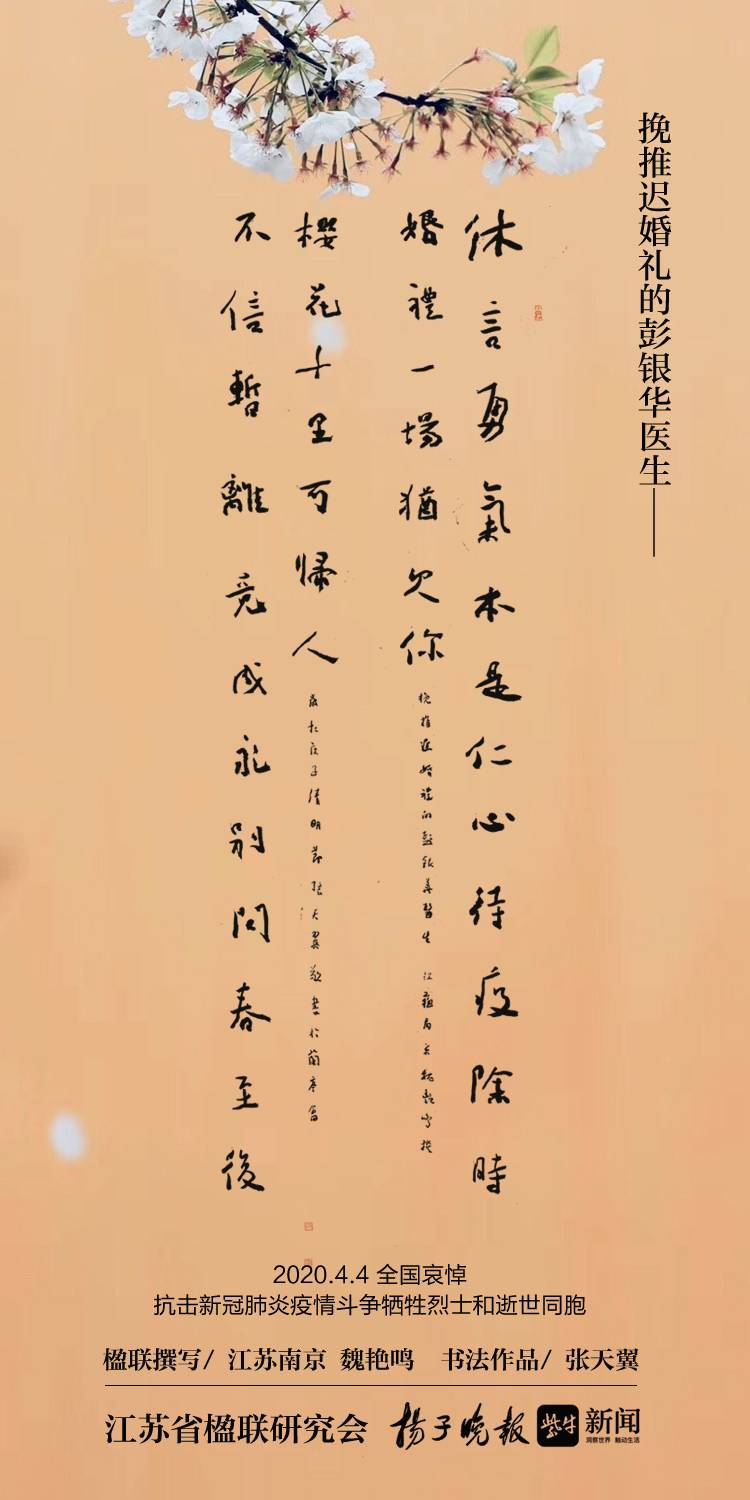 挽推迟婚礼的彭银华医生——
休言勇氣本是仁心待疫除時
婚禮一場猶欠你
挽推遲婚禮的彭銀華醫生 江蘇南京魏艷鳴撰
不信暫離竟成永別問春至後
櫻花十里可歸人
歲在庚子清明節張天翼敬書於蘭亭
2020.4.4 全国哀悼
抗击新冠肺炎疫情斗争牺牲烈士和逝世同胞
楹联撰写/ 江苏南京 魏艳鸣 书法作品/ 张天翼
江苏省楹联研究会 扬子晚报 紫牛 新闻
洞察世界 触动生活